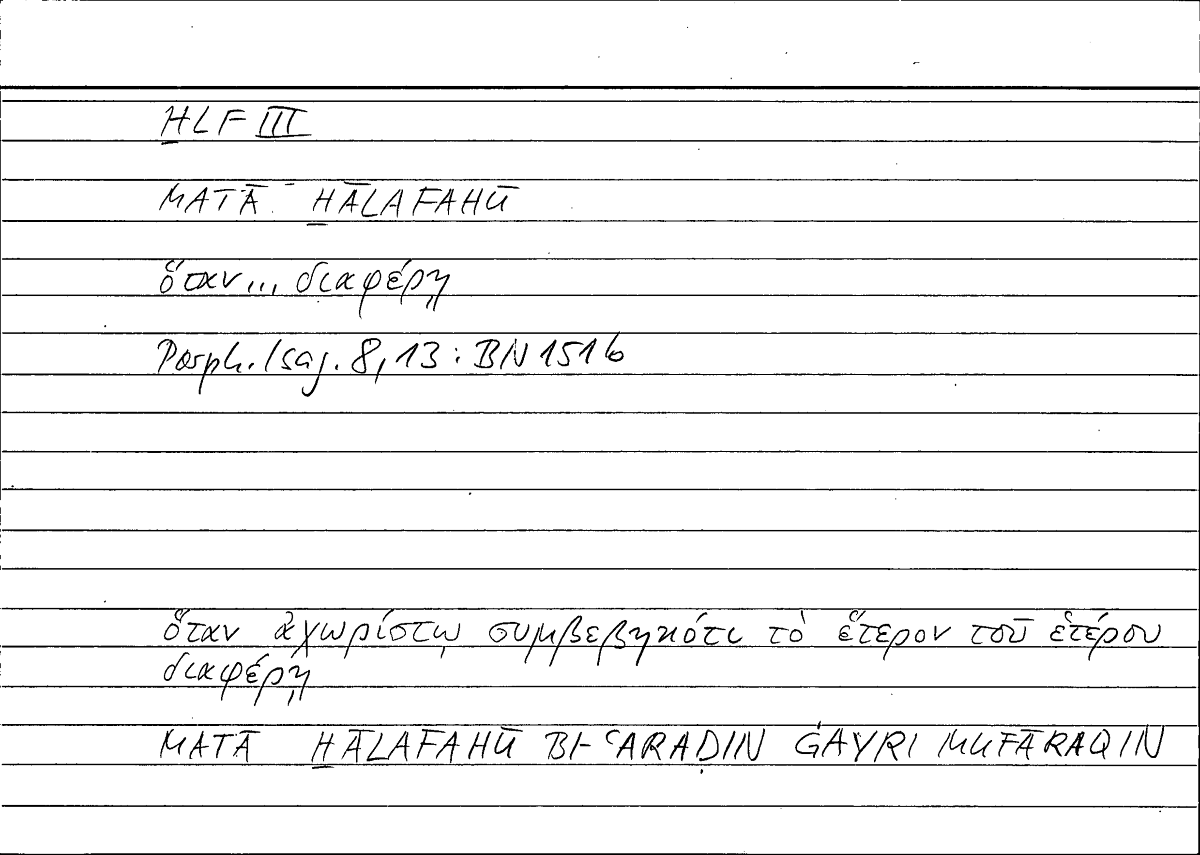 ḪLF III
MATĀ ḪĀLAFAHŪ
ὅταν... διαφέρῃ
Porph. Isag. 8,13 : BN 151b
ὅταν ἀχωρίστῳ συμβεβηκότι τὸ ἕτερον τοῦ ἑτέρου
διαφέρῃ
MATĀ ḪĀLAFAHŪ BI-ʿARAḌIN ĠAYRI MUFĀRAQIN